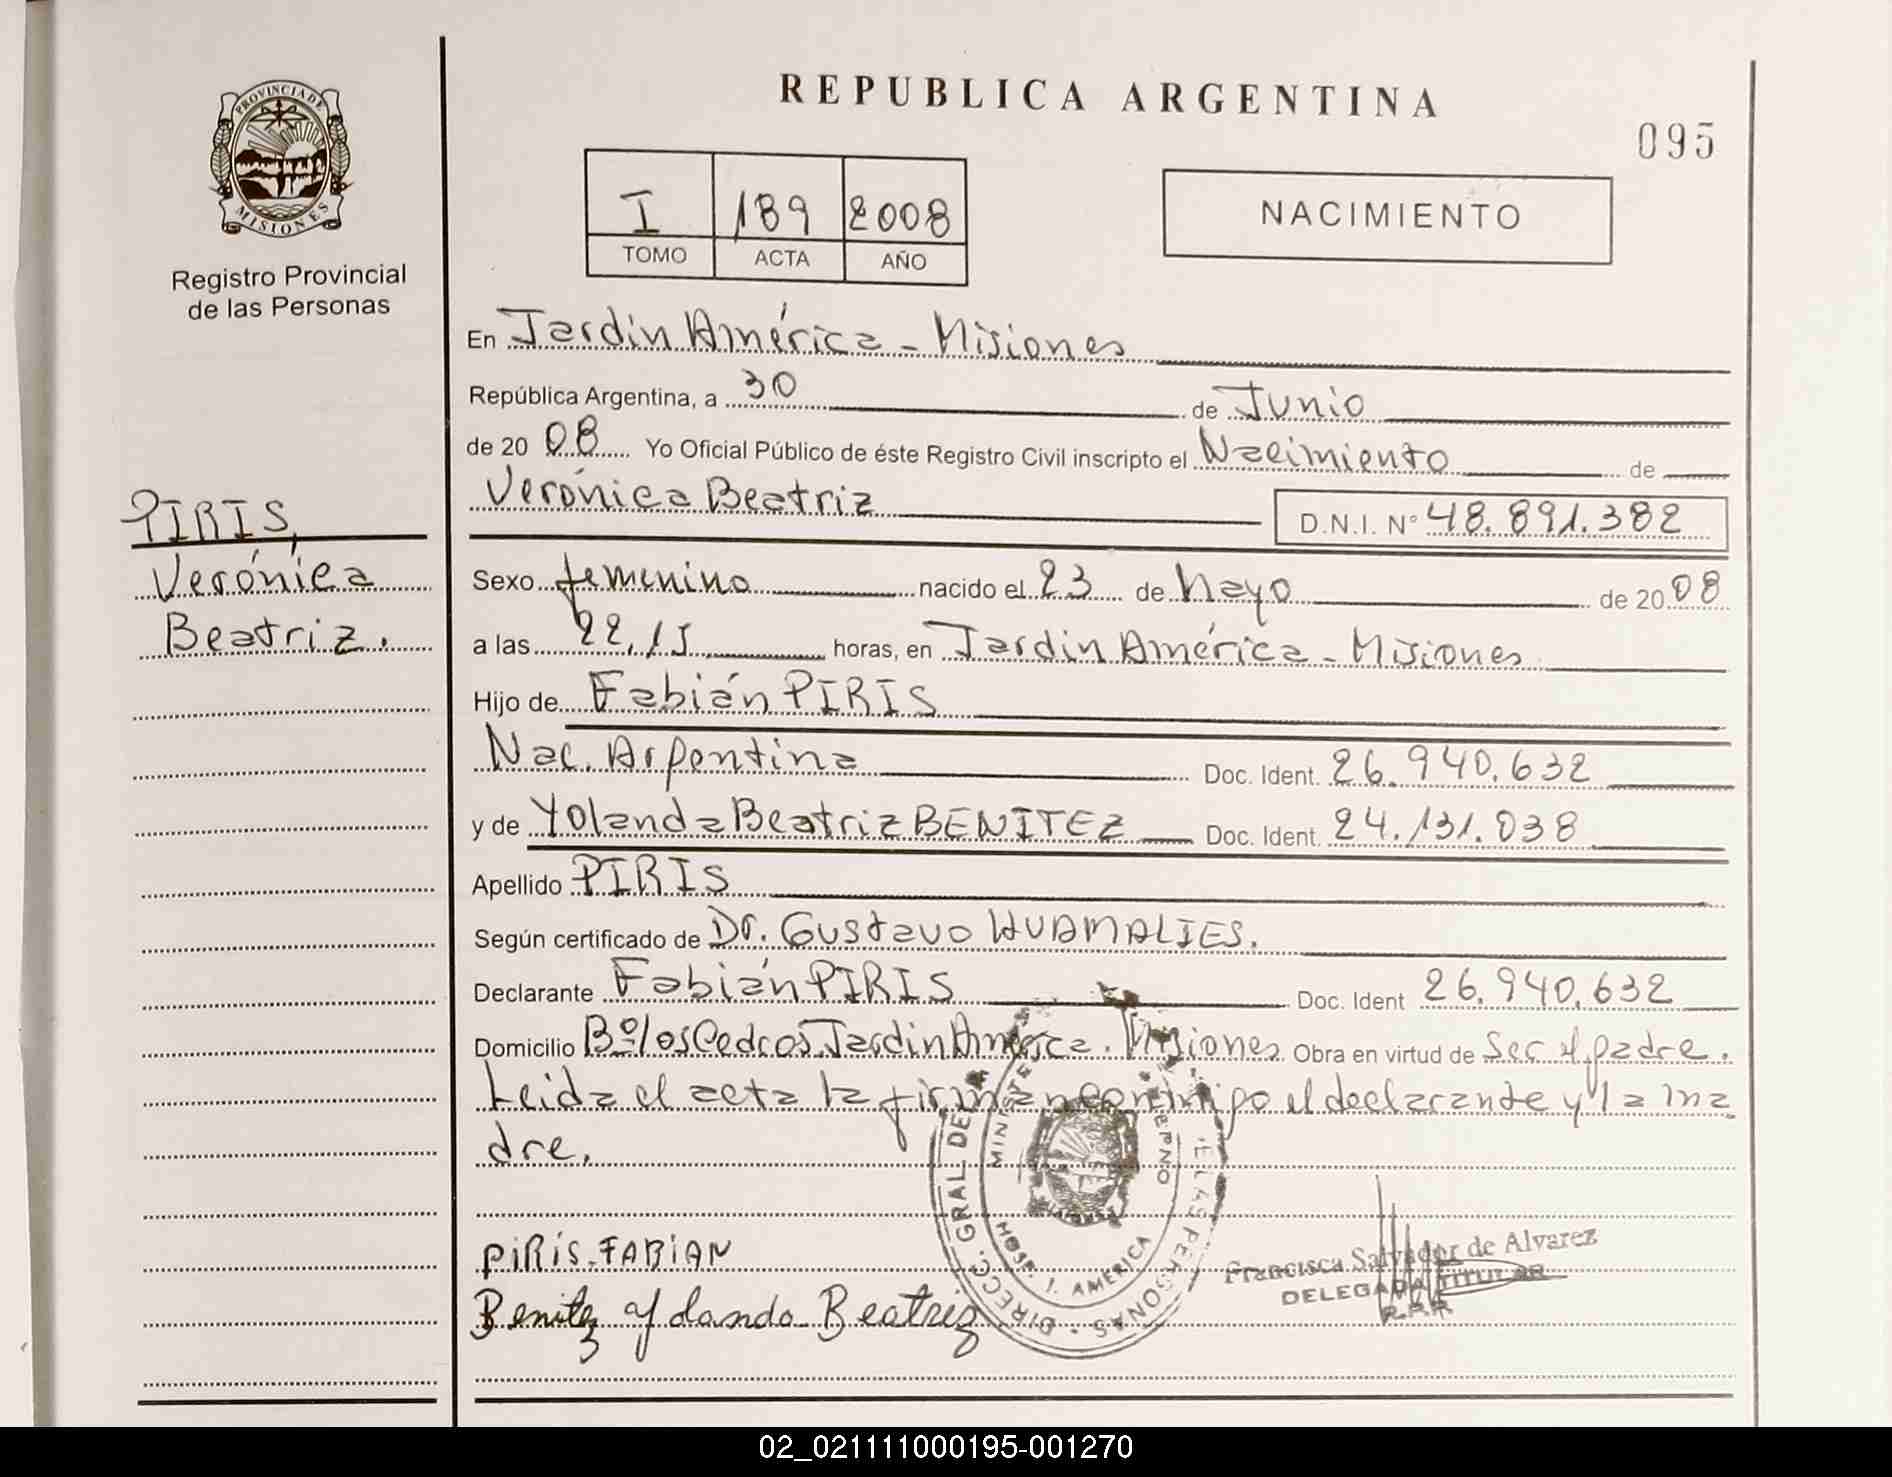 PROVINCIA DE
MISIONES
Registro Provincial
de las Personas
PIRIS,
Verónica
Beatriz.
REPUBLICA ARGENTINA
095
I 189 2008
TOMO ACTA AÑO
NACIMIENTO
En Jardín América - Misiones
República Argentina, a 30 de Junio
de 20 08 Yo Oficial Público de éste Registro Civil inscripto el Nacimiento de
Verónica Beatriz D.N.I. N° 48.891.382
Sexo femenino nacido el 23 de Mayo de 20 08
a las 22,15 horas, en Jardín América - Misiones
Hijo de Fabián PIRIS
Nac. Argentina Doc. Ident. 26.940.632
y de Yolanda Beatriz BENITEZ Doc. Ident. 24.131.038
Apellido PIRIS
Según certificado de Dr. Gustavo HUAMALIES.
Declarante Fabián PIRIS Doc. Ident 26.940.632
Domicilio Bº los Cedros. Jardín América. Misiones Obra en virtud de Ser el padre.
Leida el acta la firman conmigo el declarante y la ma
dre.
PIRIS. FABIAN
Benitez Yolanda Beatriz
DIRECC. GRAL DE LAS PERSONAS
HOSP. J. AMERICA
Francisca Salvador de Alvarez
DELEGADA TITULAR
R.P.P.
02_021111000195-001270